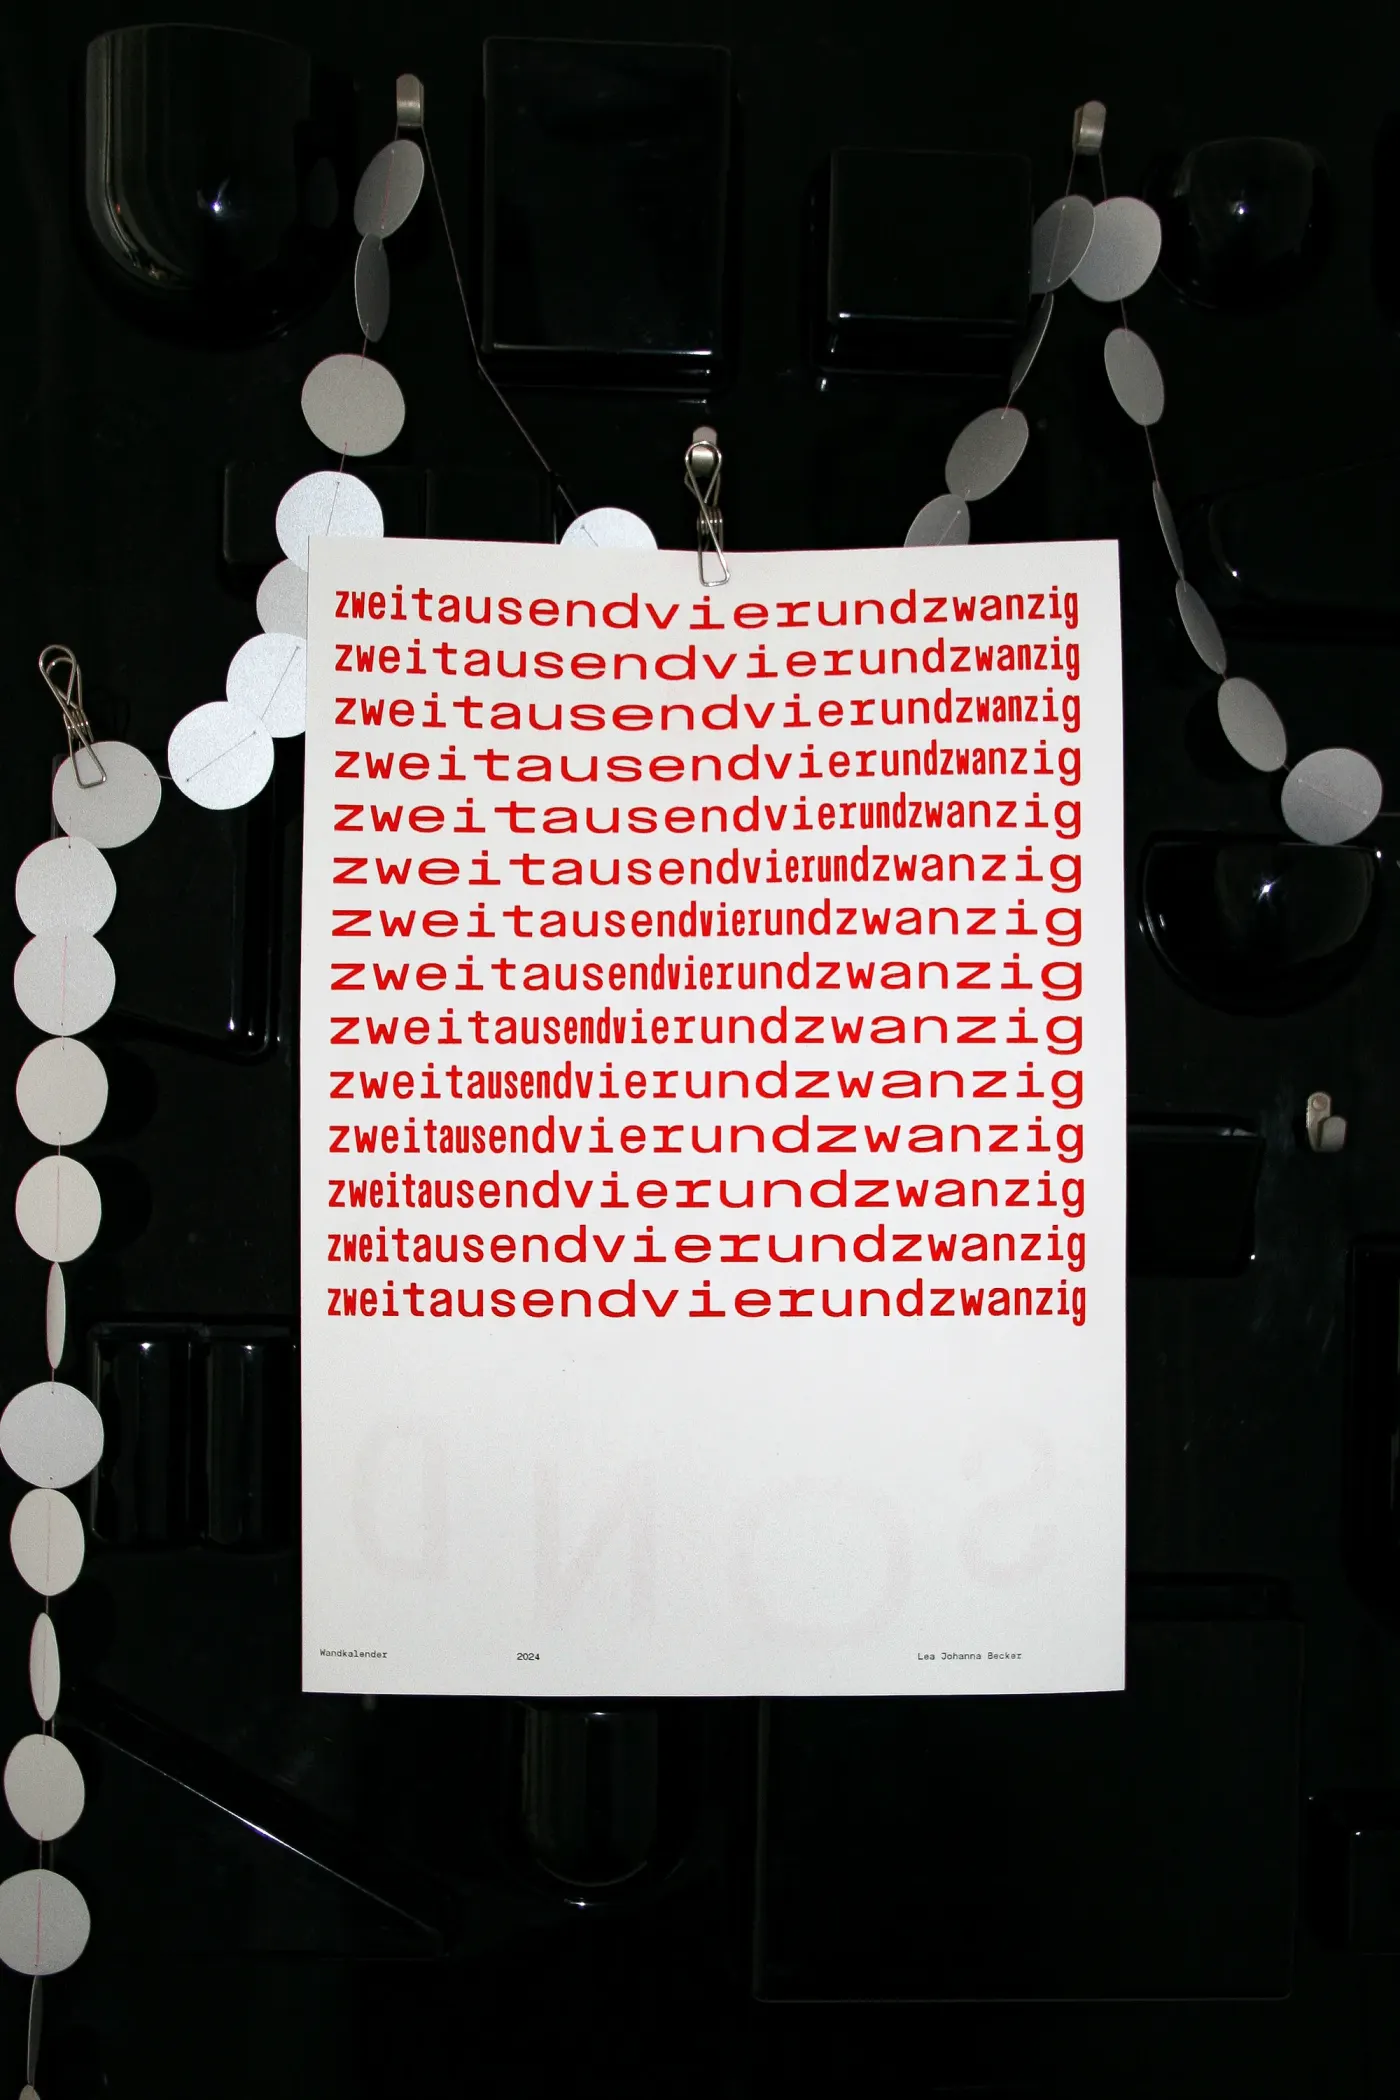 zweitausendvierundzwanzig
zweitausendvierundzwanzig
zweitausendvierundzwanzig
zweitausendvierundzwanzig
zweitausendvierundzwanzig
zweitausendvierundzwanzig
zweitausendvierundzwanzig
zweitausendvierundzwanzig
zweitausendvierundzwanzig
zweitausendvierundzwanzig
zweitausendvierundzwanzig
zweitausendvierundzwanzig
zweitausendvierundzwanzig
zweitausendvierundzwanzig
Wandkalender 2024 Lea Johanna Becker